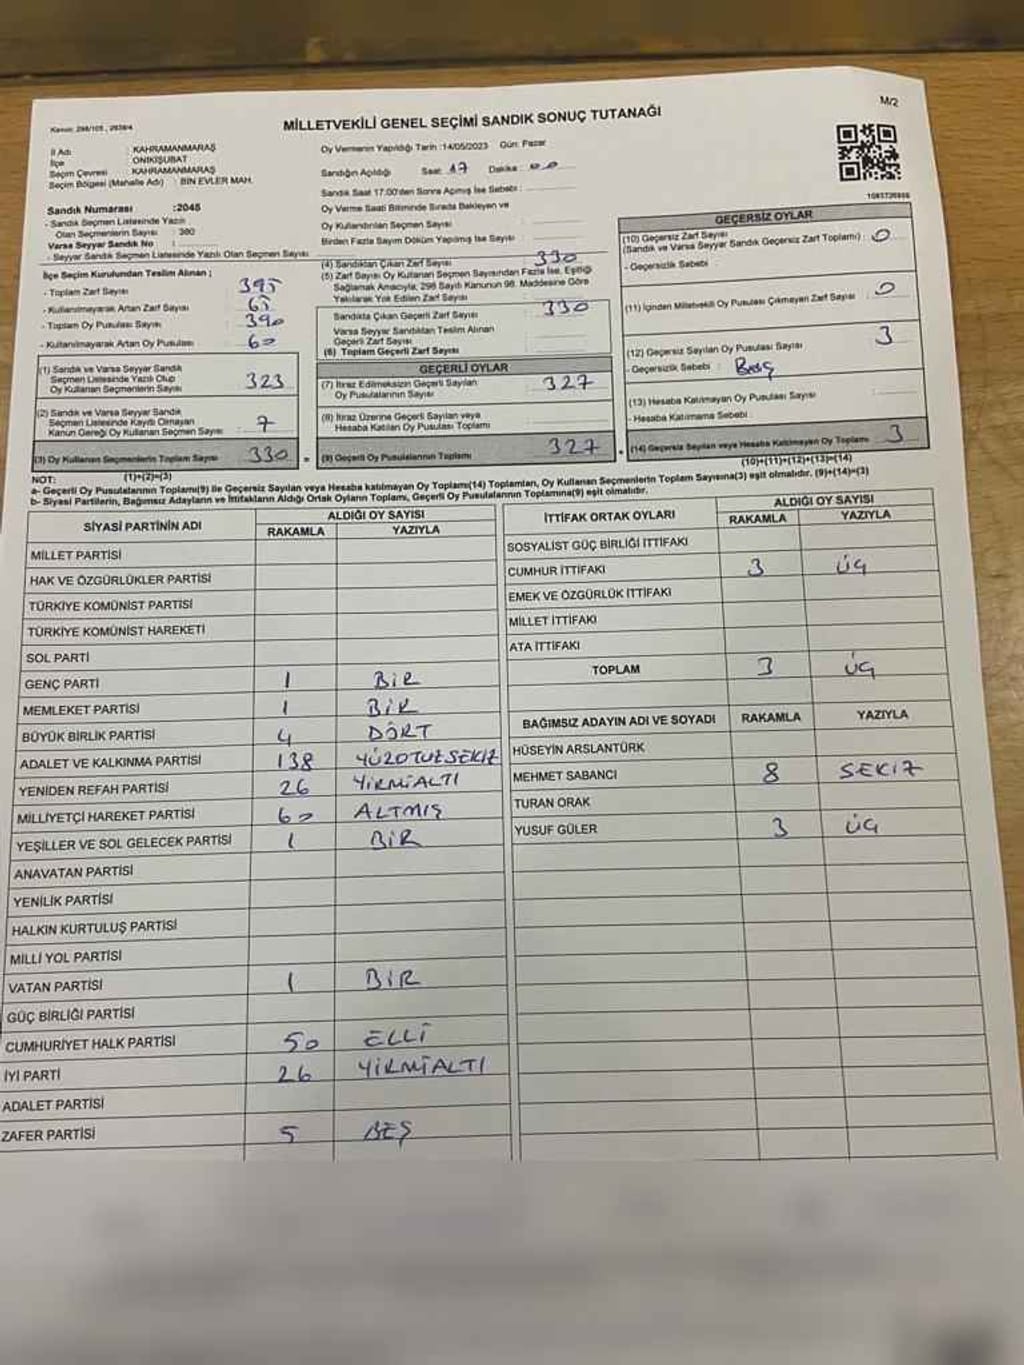 M/2
Kanun: 298/105 , 2839/4
MİLLETVEKİLİ GENEL SEÇİMİ SANDIK SONUÇ TUTANAĞI
İl Adı : KAHRAMANMARAŞ
İlçe : ONİKİŞUBAT
Seçim Çevresi : KAHRAMANMARAŞ
Seçim Bölgesi (Mahalle Adı) : BİN EVLER MAH.
Sandık Numarası :2045
- Sandık Seçmen Listesinde Yazılı
Olan Seçmenlerin Sayısı : 380
Varsa Seyyar Sandık No :
- Seyyar Sandık Seçmen Listesinde Yazılı Olan Seçmen Sayısı
Oy Vermenin Yapıldığı Tarih :14/05/2023 Gün: Pazar
Sandığın Açıldığı Saat: 17 Dakika: 00
Sandık Saat 17:00'den Sonra Açılmış İse Sebebi :
Oy Verme Saati Bitiminde Sırada Bekleyen ve
Oy Kullandırılan Seçmen Sayısı
Birden Fazla Sayım Döküm Yapılmış İse Sayısı
İlçe Seçim Kurulundan Teslim Alınan ;
- Toplam Zarf Sayısı : 395
- Kullanılmayarak Artan Zarf Sayısı : 65
- Toplam Oy Pusulası Sayısı : 390
- Kullanılmayarak Artan Oy Pusulası : 60
(1) Sandık ve Varsa Seyyar Sandık
Seçmen Listesinde Yazılı Olup
Oy Kullanan Seçmenlerin Sayısı : 323
(2) Sandık ve Varsa Seyyar Sandık
Seçmen Listesinde Kayıtlı Olmayan
Kanun Gereği Oy Kullanan Seçmen Sayısı : 7
(3) Oy Kullanan Seçmenlerin Toplam Sayısı 330
(1)+(2)=(3)
(4) Sandıktan Çıkan Zarf Sayısı 330
(5) Zarf Sayısı Oy Kullanan Seçmen Sayısından Fazla İse, Eşitliği
Sağlamak Amacıyla, 298 Sayılı Kanunun 98. Maddesine Göre
Yakılarak Yok Edilen Zarf Sayısı
Sandıkta Çıkan Geçerli Zarf Sayısı : 330
Varsa Seyyar Sandıktan Teslim Alınan
Geçerli Zarf Sayısı
(6) Toplam Geçerli Zarf Sayısı
GEÇERLİ OYLAR
(7) İtiraz Edilmeksizin Geçerli Sayılan
Oy Pusulalarının Sayısı : 327
(8) İtiraz Üzerine Geçerli Sayılan veya
Hesaba Katılan Oy Pusulası Toplamı
(9) Geçerli Oy Pusulalarının Toplamı 327
GEÇERSİZ OYLAR
(10) Geçersiz Zarf Sayısı
(Sandık ve Varsa Seyyar Sandık Geçersiz Zarf Toplamı) : 0
- Geçersizlik Sebebi
(11) İçinden Milletvekili Oy Pusulası Çıkmayan Zarf Sayısı : 0
(12) Geçersiz Sayılan Oy Pusulası Sayısı : 3
- Geçersizlik Sebebi :
(13) Hesaba Katılmayan Oy Pusulası Sayısı
- Hesaba Katılmama Sebebi
(14) Geçersiz Sayılan veya Hesaba Katılmayan Oy Toplamı 3
(10)+(11)+(12)+(13)=(14)
NOT:
a- Geçerli Oy Pusulalarının Toplamı(9) ile Geçersiz Sayılan veya Hesaba katılmayan Oy Toplamı(14) Toplamları, Oy Kullanan Seçmenlerin Toplam Sayısına(3) eşit olmalıdır. (9)+(14)=(3)
b- Siyasi Partilerin, Bağımsız Adayların ve İttifakların Aldığı Ortak Oyların Toplamı, Geçerli Oy Pusulalarının Toplamına(9) eşit olmalıdır.
SİYASİ PARTİNİN ADI ALDIĞI OY SAYISI
RAKAMLA YAZIYLA
MİLLET PARTİSİ
HAK VE ÖZGÜRLÜKLER PARTİSİ
TÜRKİYE KOMÜNİST PARTİSİ
TÜRKİYE KOMÜNİST HAREKETİ
SOL PARTİ
GENÇ PARTİ 1 BİR
MEMLEKET PARTİSİ 1 BİR
BÜYÜK BİRLİK PARTİSİ 4 DÖRT
ADALET VE KALKINMA PARTİSİ 138 YÜZOTUZSEKİZ
YENİDEN REFAH PARTİSİ 26 YİRMİALTI
MİLLİYETÇİ HAREKET PARTİSİ 60 ALTMIŞ
YEŞİLLER VE SOL GELECEK PARTİSİ 1 BİR
ANAVATAN PARTİSİ
YENİLİK PARTİSİ
HALKIN KURTULUŞ PARTİSİ
MİLLİ YOL PARTİSİ
VATAN PARTİSİ 1 BİR
GÜÇ BİRLİĞİ PARTİSİ
CUMHURİYET HALK PARTİSİ 50 ELLİ
İYİ PARTİ 26 YİRMİALTI
ADALET PARTİSİ
ZAFER PARTİSİ 5 BEŞ
İTTİFAK ORTAK OYLARI ALDIĞI OY SAYISI
RAKAMLA YAZIYLA
SOSYALİST GÜÇ BİRLİĞİ İTTİFAKI
CUMHUR İTTİFAKI 3 ÜÇ
EMEK VE ÖZGÜRLÜK İTTİFAKI
MİLLET İTTİFAKI
ATA İTTİFAKI
TOPLAM 3 ÜÇ
BAĞIMSIZ ADAYIN ADI VE SOYADI RAKAMLA YAZIYLA
HÜSEYİN ARSLANTÜRK
MEHMET SABANCI 8 SEKİZ
TURAN ORAK
YUSUF GÜLER 3 ÜÇ